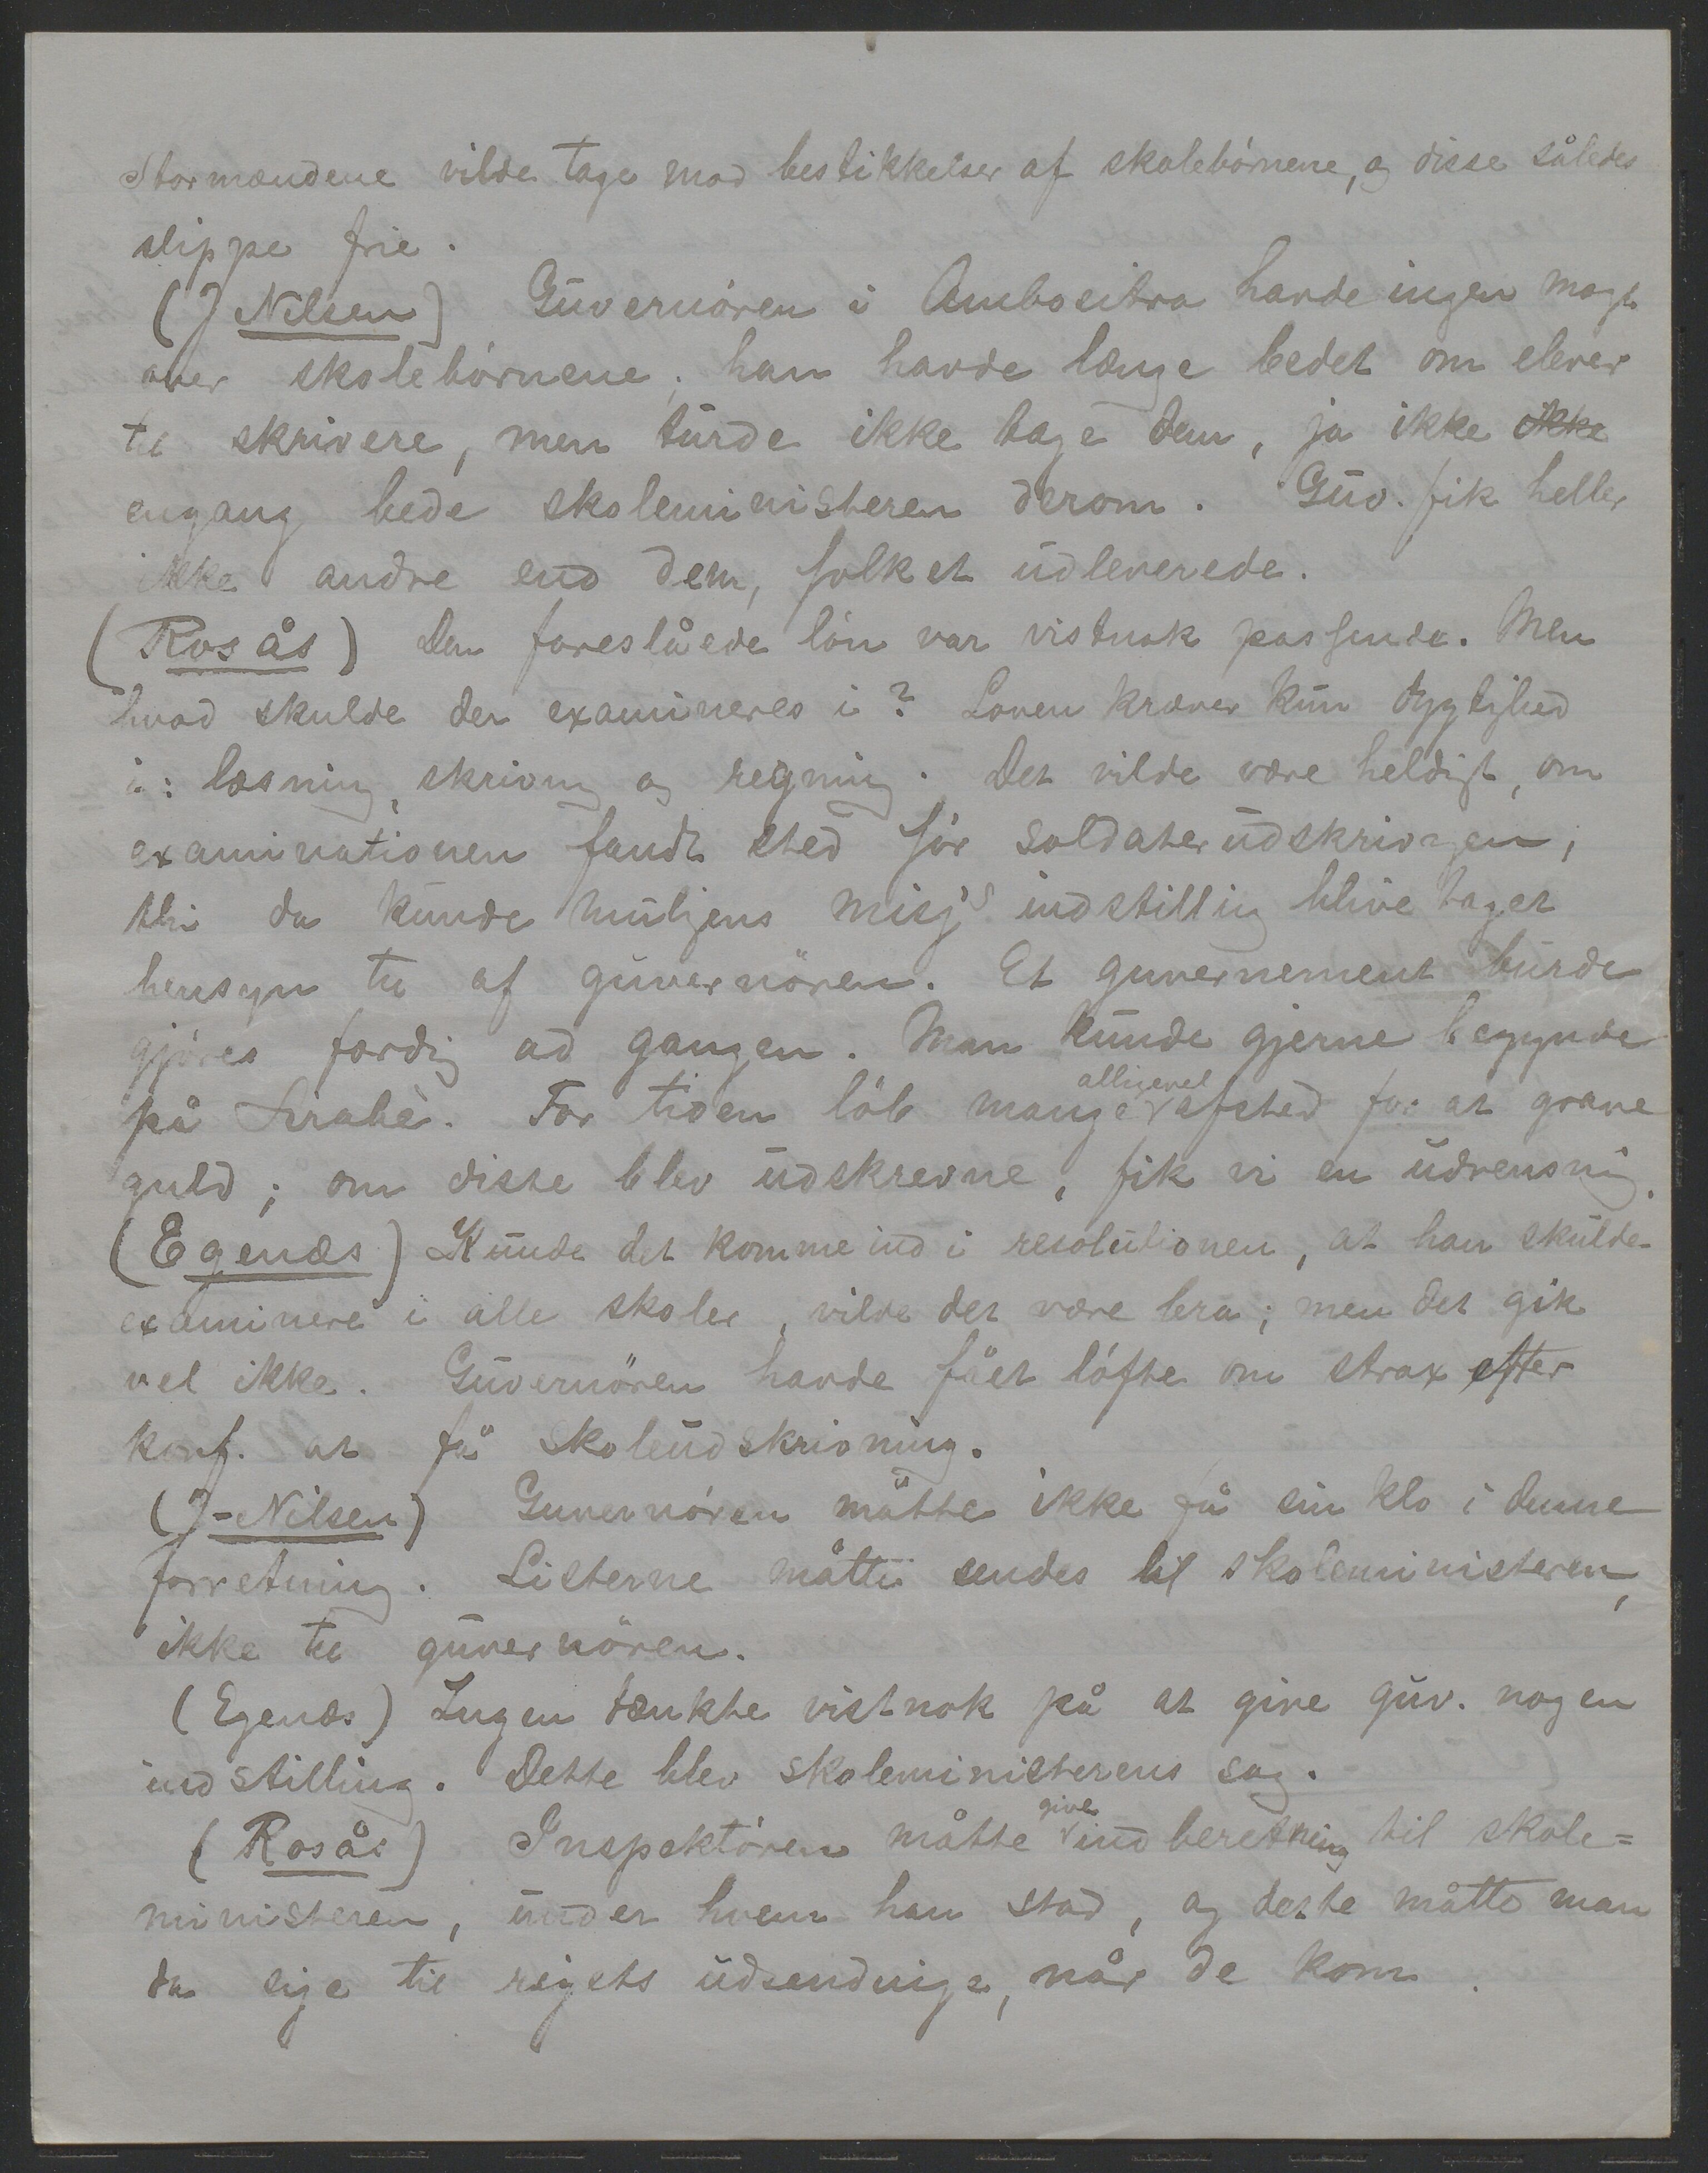 Stormændene vilde tage mod bestikkelser af skolebörnene, og disse således
slippe frie.
(J Nilsen) Guvernören i Ambositra havde ingen magt
over skolebörnene; han havde længe bedet om elever
til skrivere, men turde ikke tage dem, ja ikke ikke
engang bede skoleministeren derom. Guv. fik heller
ikke andre end dem, folket udleverede.
(Rosås) Den foreslåede lön var vistnok passende. Men
hvad skulde der examineres i? Loven kræver kun dygtighed
i: læsning, skrivng og regning. Det vilde være heldigt, om
examinationen fandt sted för soldaterudskrivngen;
thi da kunde muligens misj's indstilling blive taget
hensyn til af guvernören. Et guvernement burde
gjöres færdig ad gangen. Man kunde gjerne begynde
på Sirabè. For tiden löb mange alligevel afsted for at grave
guld; om disse blev udskrevne, fik vi en udrensning.
(Egenæs) Kunde det komme ind i resolutionen, at han skulde
examinere i alle skoler, vilde det være bra; men det gik
vel ikke. Guvernören havde fået löfte om strax efter
konf. at få skoleudskrivning.
(J-Nilsen) Guvernören måtte ikke få sin klo i denne
forretning. Listerne måtte sendes til skoleministeren,
ikke til guvernören.
(Egenæs) Ingen tænkte vistnok på at give guv. nogen
indstilling. Dette blev skoleministerens sag.
(Rosås) Inspektören måtte give indberetning til skole=
ministeren, under hvem han stod, og dette måtte man
da sige til rigets udsendinge, når de kom.